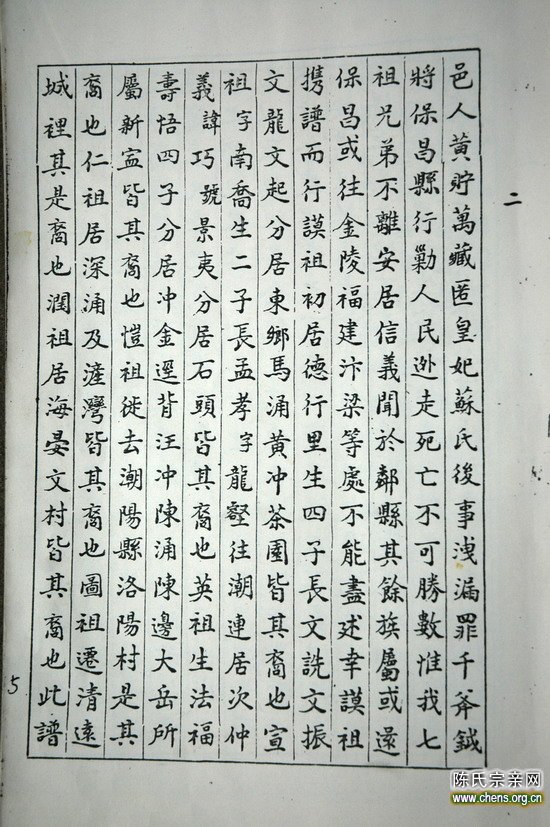 二
邑人黃貯萬藏匿皇妃蘇氏後事洩漏罪千斧鉞
將保昌縣行勦人民迯走死亡不可勝數惟我七
祖兄弟不離安居信義聞於鄰縣其餘族屬或遠
保昌或往金陵福建汴梁等處不能盡述幸謨祖
携譜而行謨祖初居德行里生四子長文詵文振
文龍文起分居東鄉馬涌黄冲茶園皆其裔也宣
祖字南喬生二子長孟孝字龍壑往潮連居次仲
義諱巧號景夷分居石頭皆其裔也英祖生法福
壽悟四子分居冲金逕背汪冲陳涌陳邊大岳所
屬新寍皆其裔也愷祖徙去潮陽縣洛陽村是其
裔也仁祖居深涌及滘灣皆其裔也圖祖遷清遠
城裡其是裔也潤祖居海晏文村皆其裔也此譜
5
陈氏宗亲网
www.chens.org.cn